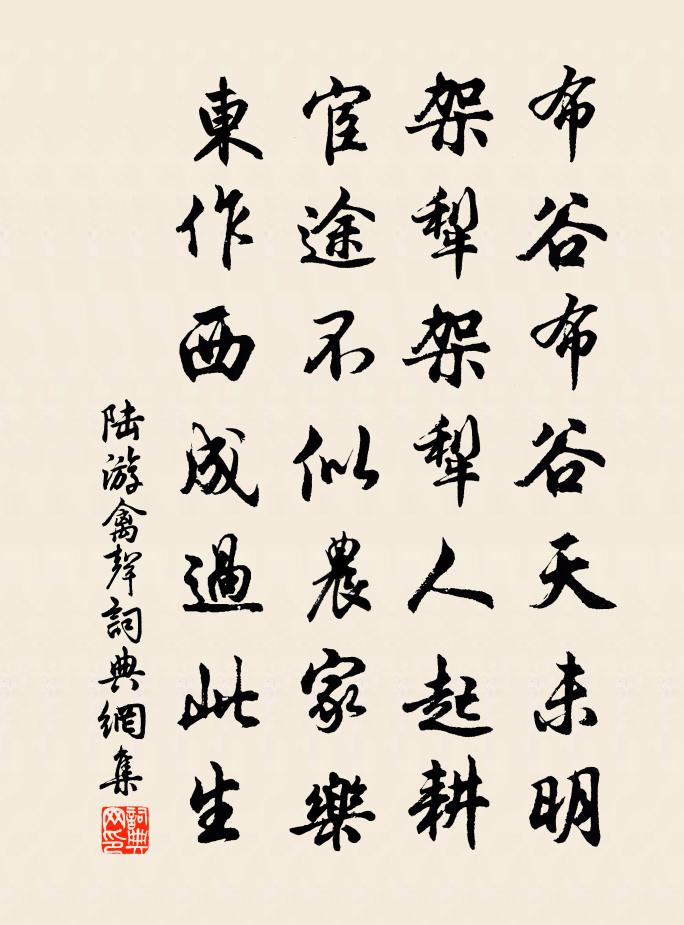 布谷布谷天未明
架犁架犁人起耕
宦途不似農家樂
東作西成過此生
陆游禽聲詞典網集
詞典网印